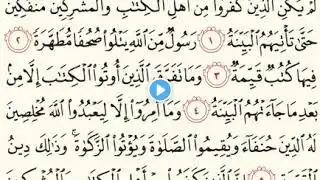 لَمْ يَكُنِ الَّذِينَ كَفَرُوا مِنْ أَهْلِ الْكِتَابِ وَالْمُشْرِكِينَ مُنْفَكِّينَ
حَتَّى تَأْتِيَهُمُ الْبَيِّنَةُ ١ رَسُولٌ مِنَ اللَّهِ يَتْلُوا صُحُفًا مُطَهَّرَةً ٢
فِيهَا كُتُبٌ قَيِّمَةٌ ٣ وَمَا تَفَرَّقَ الَّذِينَ أُوتُوا الْكِتَابَ إِلَّا مِنْ
بَعْدِ مَا جَاءَتْهُمُ الْبَيِّنَةُ ٤ وَمَا أُمِرُوا إِلَّا لِيَعْبُدُوا اللَّهَ مُخْلِصِينَ
لَهُ الدِّينَ حُنَفَاءَ وَيُقِيمُوا الصَّلَوٰةَ وَيُؤْتُوا الزَّكَوٰةَ وَذَٰلِكَ دِينُ